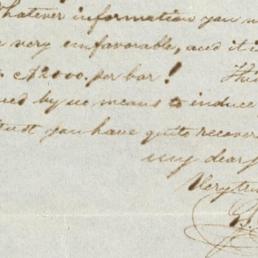 Whatever information you
very unfavorable, and it i
$2000. per bar! Thi
ued by us means to induce
trust you have quite recover
my dear
Very tru